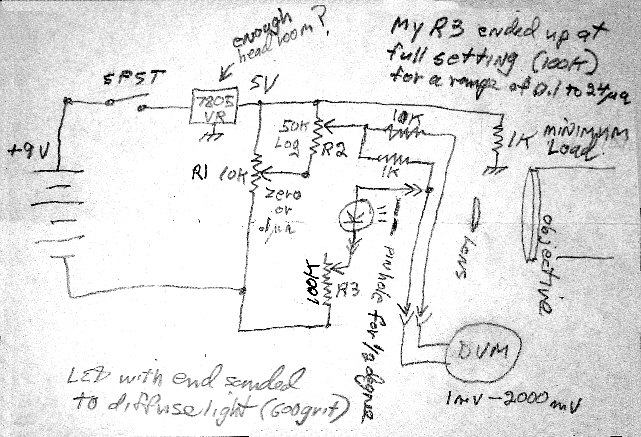 enough
head room?
My R3 ended up at
full setting (100K)
for a range of 0.1 to 24µa
SPST
7805
VR
5V
+9V
50K
Log
R2
10K
1K
1K MINIMUM
Load
R1 10K
zero
or
.1µa
K
100K
R3
pinhole for 1/2 degree
LENS
objective
DVM
1mV-2000mV
LED with end sanded
to diffuse light (600grit)